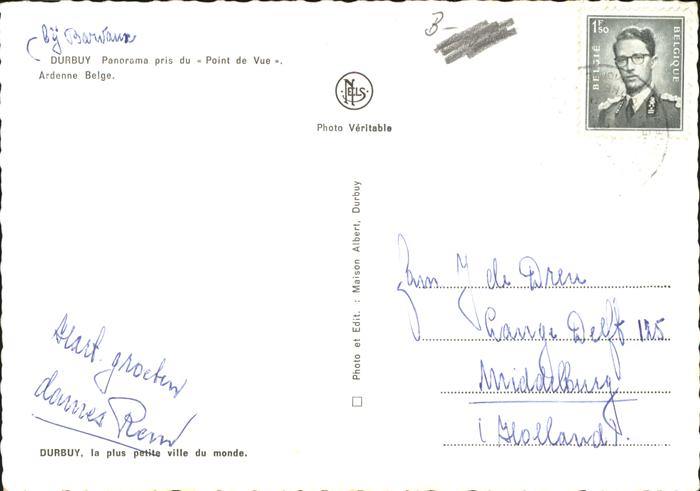 (bij Barvaux
DURBUY Panorama pris du « Point de Vue ».
Ardenne Belge.
B-
NELS
Photo Véritable
1F50
BELGIË BELGIQUE
Photo et Edit. : Maison Albert, Durbuy
Fam J de Dreu
Lange Delft 125
Middelburg
i Holland.
Hart. groeten
dames
DURBUY, la plus petite ville du monde.